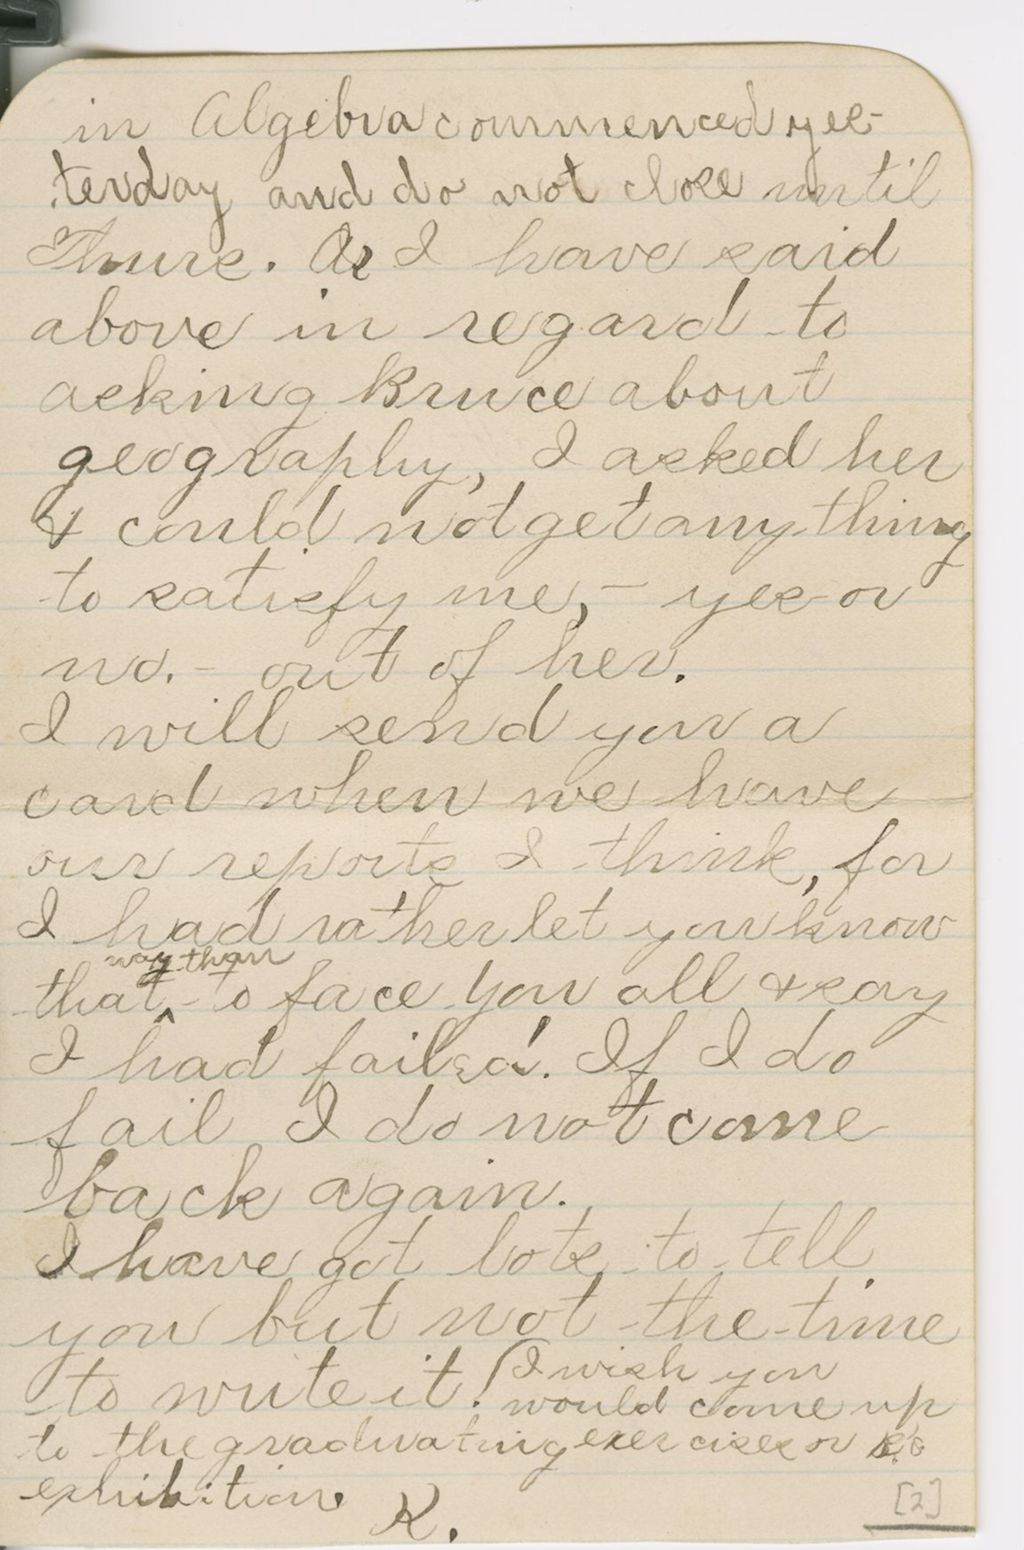 in Algebra commenced yes-
terday and do not close until
Thurs. As I have said
above in regard to
asking Bruce about
geography, I asked her
& could not get any thing
to satisfy me, - yes or
no. - out of her.
I will send you a
card when we have
our reports I think, for
I had rather let you know
way than
that ^ to face you all & say
I had failed. If I do
fail I do not come
back again.
I have got lots to tell
you but not the time
to write it. (I wish you
would come up
to the graduating exercises or
exhibition. K.
[2]